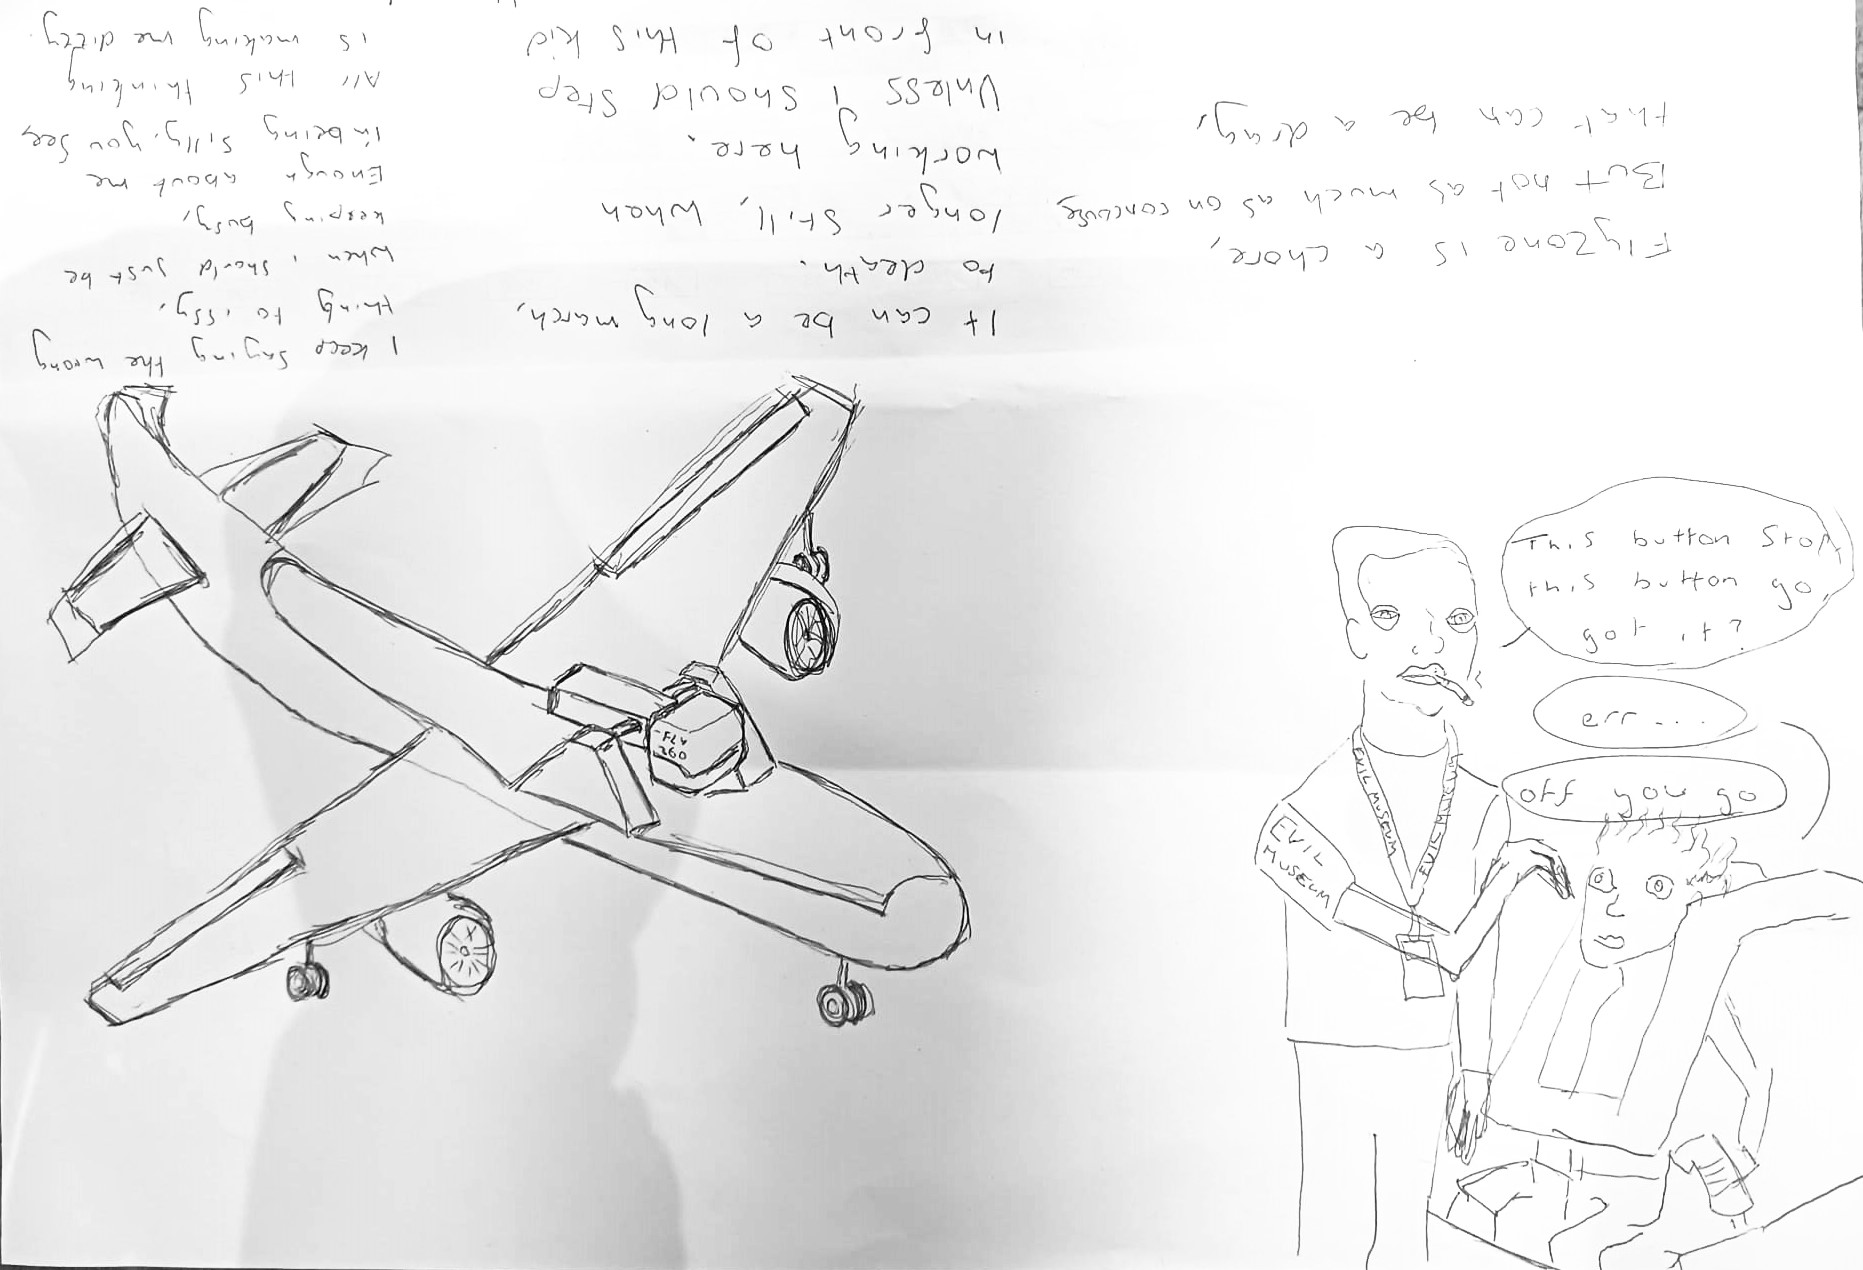 Flyzone is a chore,
But not as much as on concourse,
that can be a drag,
It can be a long march,
to death.
longer still, when
working here.
Unless I should step
in front of this kid
I keep saying the wrong
thing to issy,
when i should just be
keeping busy,
Enough about me
I'm being silly, you see
All this thinking
is making me dizzy.
FLY
360
This button Stop,
this button go,
got it?
err...
off you go
EVIL MUSEUM
EVIL MUSEUM
EVIL
MUSEUM